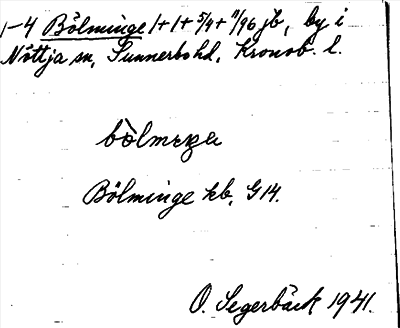 1-4 Bölminge 1+1+5/4+11/96 jb, by i
Nöttja sn, Sunnerbo hd, Kronob. l.
Bölminge kb, G14.
O. Segerbäck 1941.